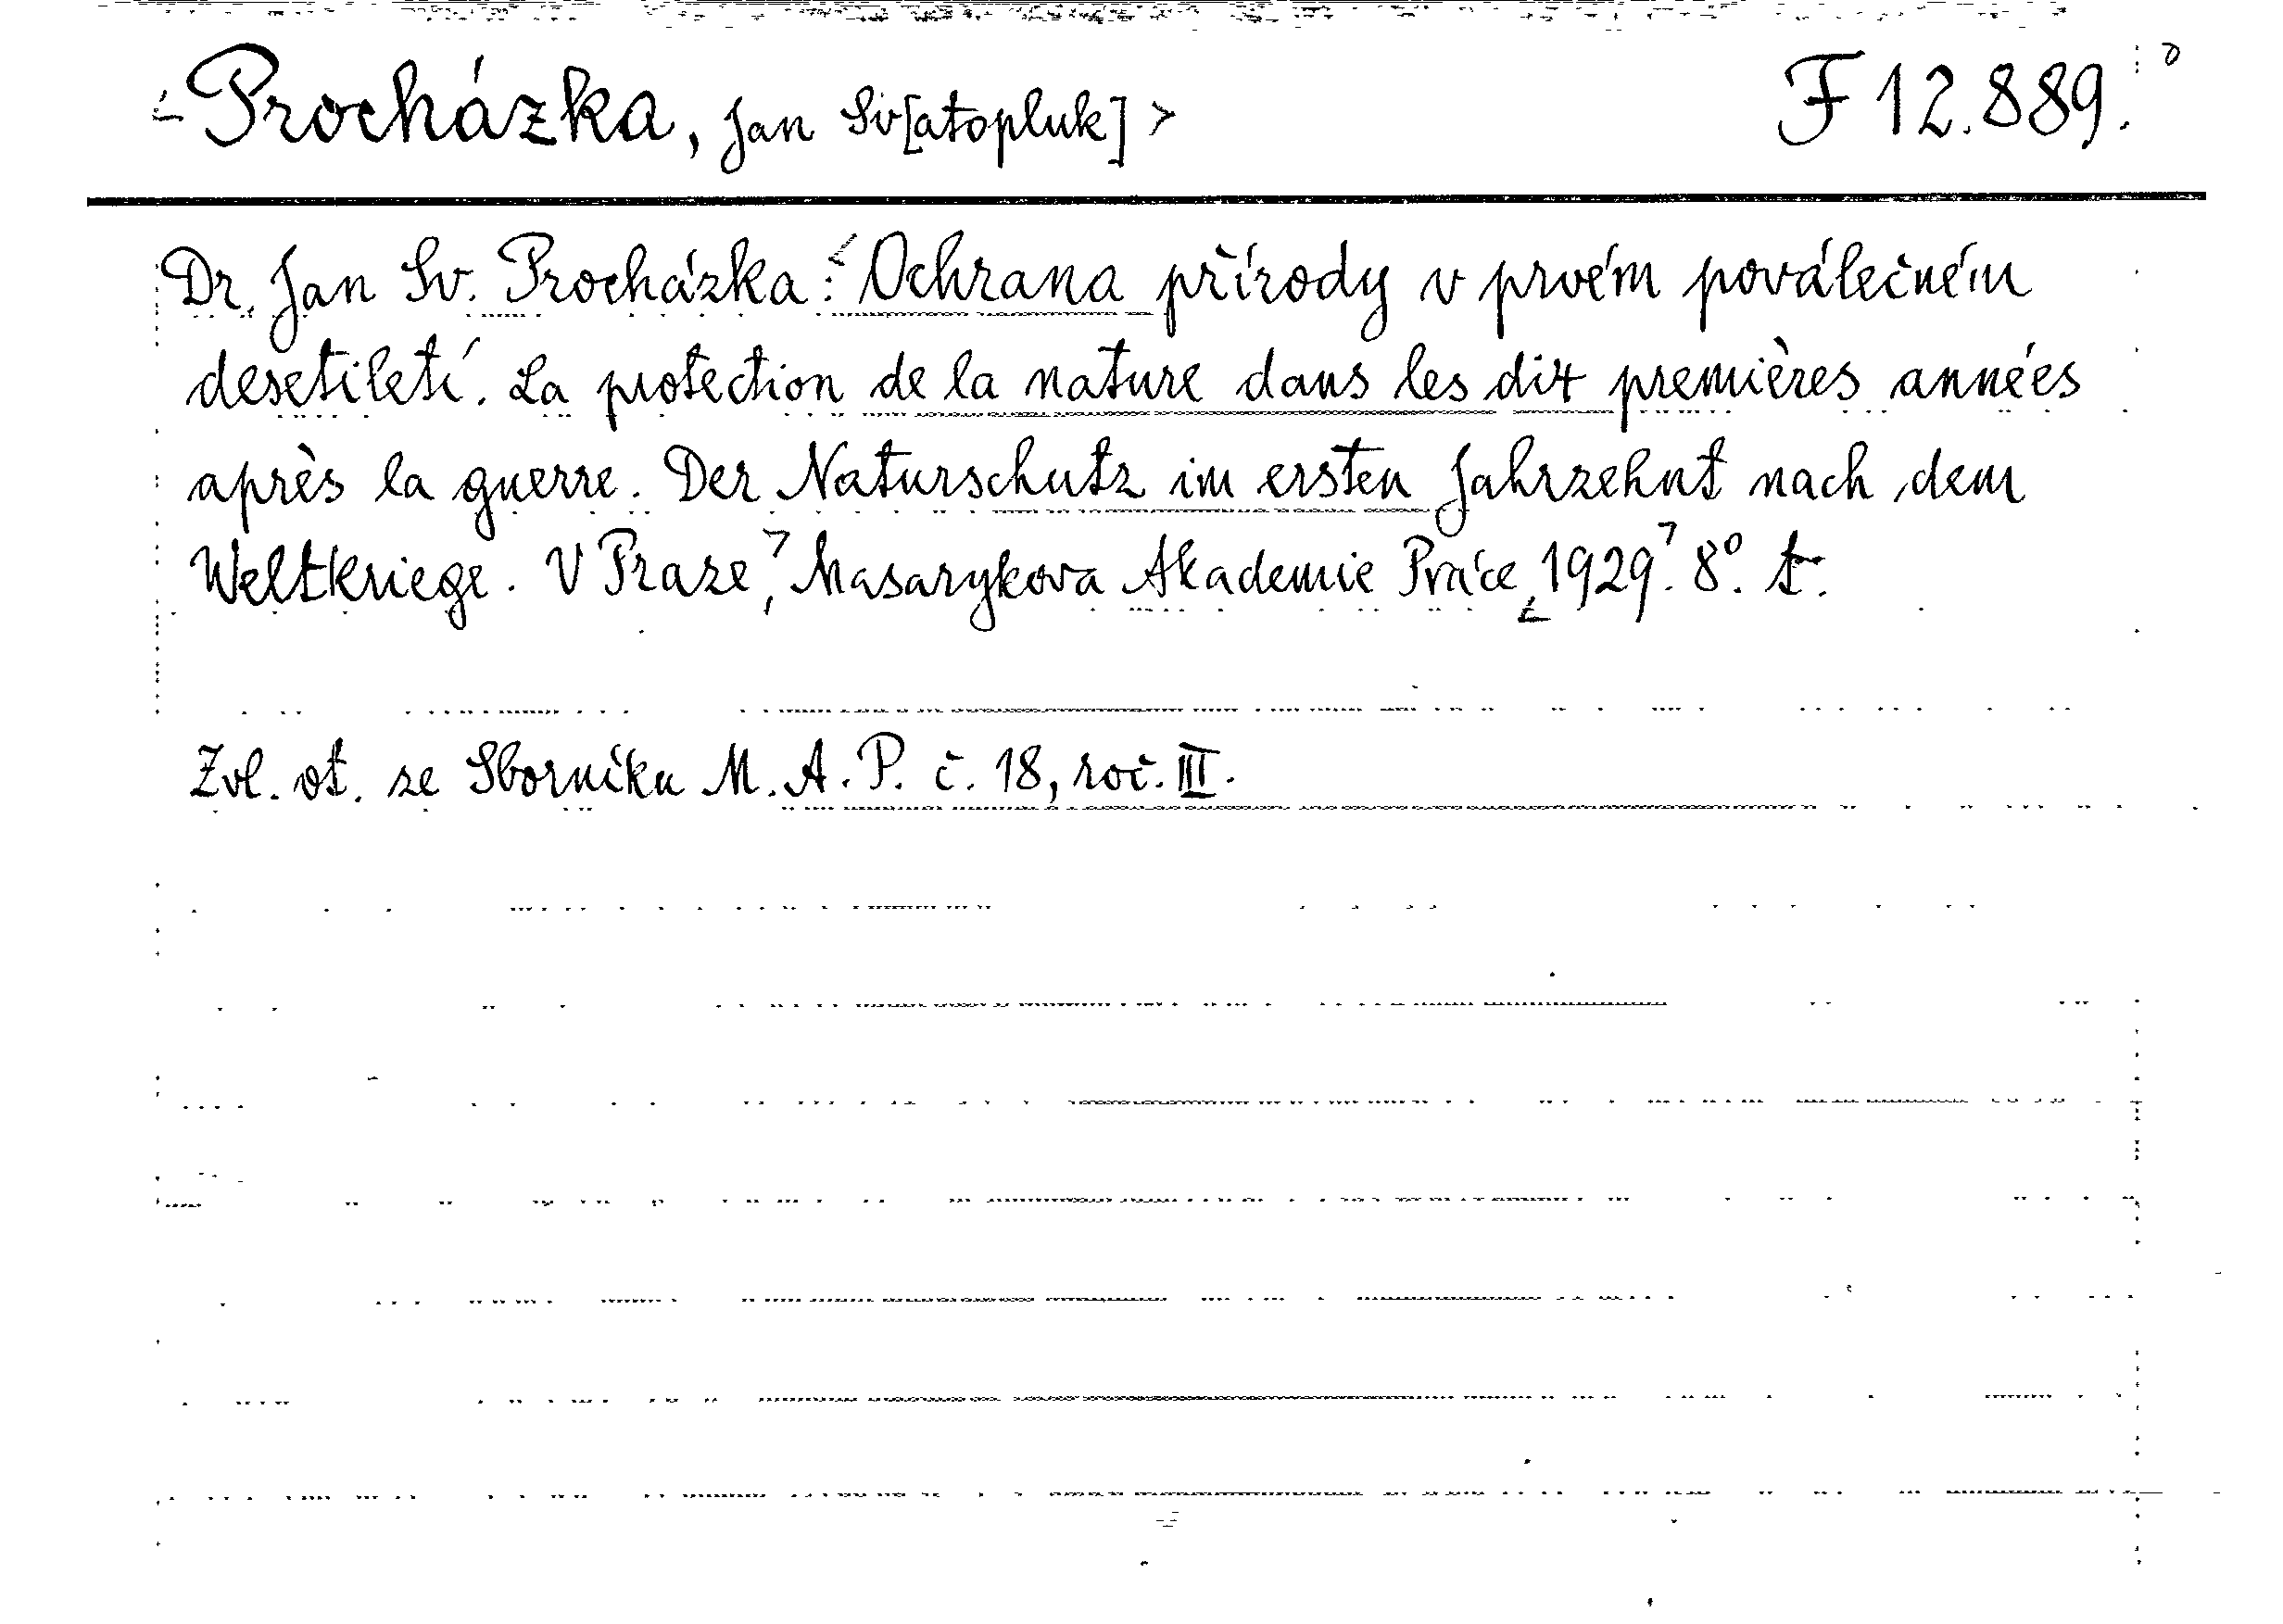 Procházka, Jan Sv[atopluk] F 12.889.
Dr. Jan Sv. Procházka: Ochrana přírody v prvém poválečném
desetiletí. La protection de la nature dans les dix premières années
après la guerre. Der Naturschutz im ersten Jahrzehnt nach dem
Weltkriege. V Praze, Masarykova Akademie Práce, 1929. 8°. t.
Zvl. ot. ze Sborníku M. A. P. č. 18, roč. III.